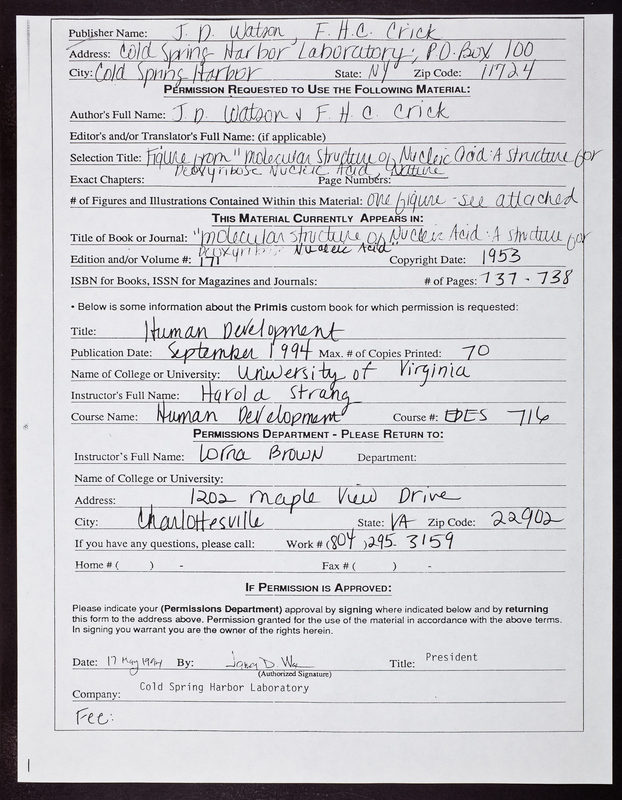 Publisher Name: J. D. Watson, F. H. C. Crick
Address: Cold Spring Harbor Laboratory, P.O. Box 100
City: Cold Spring Harbor State: NY Zip Code: 11724
PERMISSION REQUESTED TO USE THE FOLLOWING MATERIAL:
Author's Full Name: J. D. Watson & F. H. C. Crick
Editor's and/or Translator's Full Name: (if applicable)
Selection Title: Figure from "Molecular Structure of Nucleic Acid: A Structure for
Deoxyribose Nucleic Acid, Nature
Exact Chapters: Page Numbers:
# of Figures and Illustrations Contained Within this Material: one figure - see attached
THIS MATERIAL CURRENTLY APPEARS IN:
Title of Book or Journal: "Molecular Structure of Nucleic Acid: A Structure for
Deoxyribose Nucleic Acid"
Edition and/or Volume #: 171 Copyright Date: 1953
ISBN for Books, ISSN for Magazines and Journals: # of Pages: 737 - 738
• Below is some information about the Primis custom book for which permission is requested:
Title: Human Development
Publication Date: September 1994 Max. # of Copies Printed: 70
Name of College or University: University of Virginia
Instructor's Full Name: Harold Strang
Course Name: Human Development Course #: EDES 716
PERMISSIONS DEPARTMENT - PLEASE RETURN TO:
Instructor's Full Name: Lorna Brown Department:
Name of College or University:
Address: 1202 Maple View Drive
City: Charlottesville State: VA Zip Code: 22902
If you have any questions, please call: Work # (804) 295-3159
Home # ( ) - Fax # ( ) -
IF PERMISSION IS APPROVED:
Please indicate your (Permissions Department) approval by signing where indicated below and by returning
this form to the address above. Permission granted for the use of the material in accordance with the above terms.
In signing you warrant you are the owner of the rights herein.
Date: 17 May 1994 By: James D. Wa Title: President
(Authorized Signature)
Company: Cold Spring Harbor Laboratory
Fee: